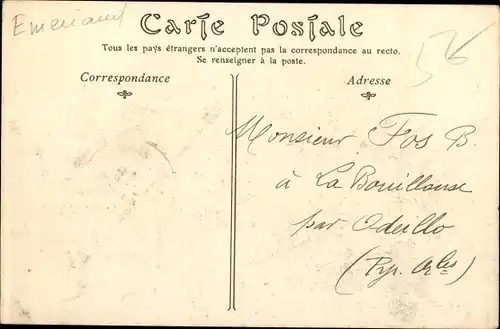 Carte Postale
Tous les pays étrangers n'acceptent pas la correspondance au recto.
Se renseigner à la poste.
Correspondance
Adresse
Monsieur Fos B.
à La Bouillouse
par Odeillo
(Pyr. Ories)